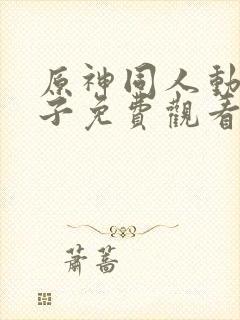 原神同人動
子免費觀看
蕭蒿